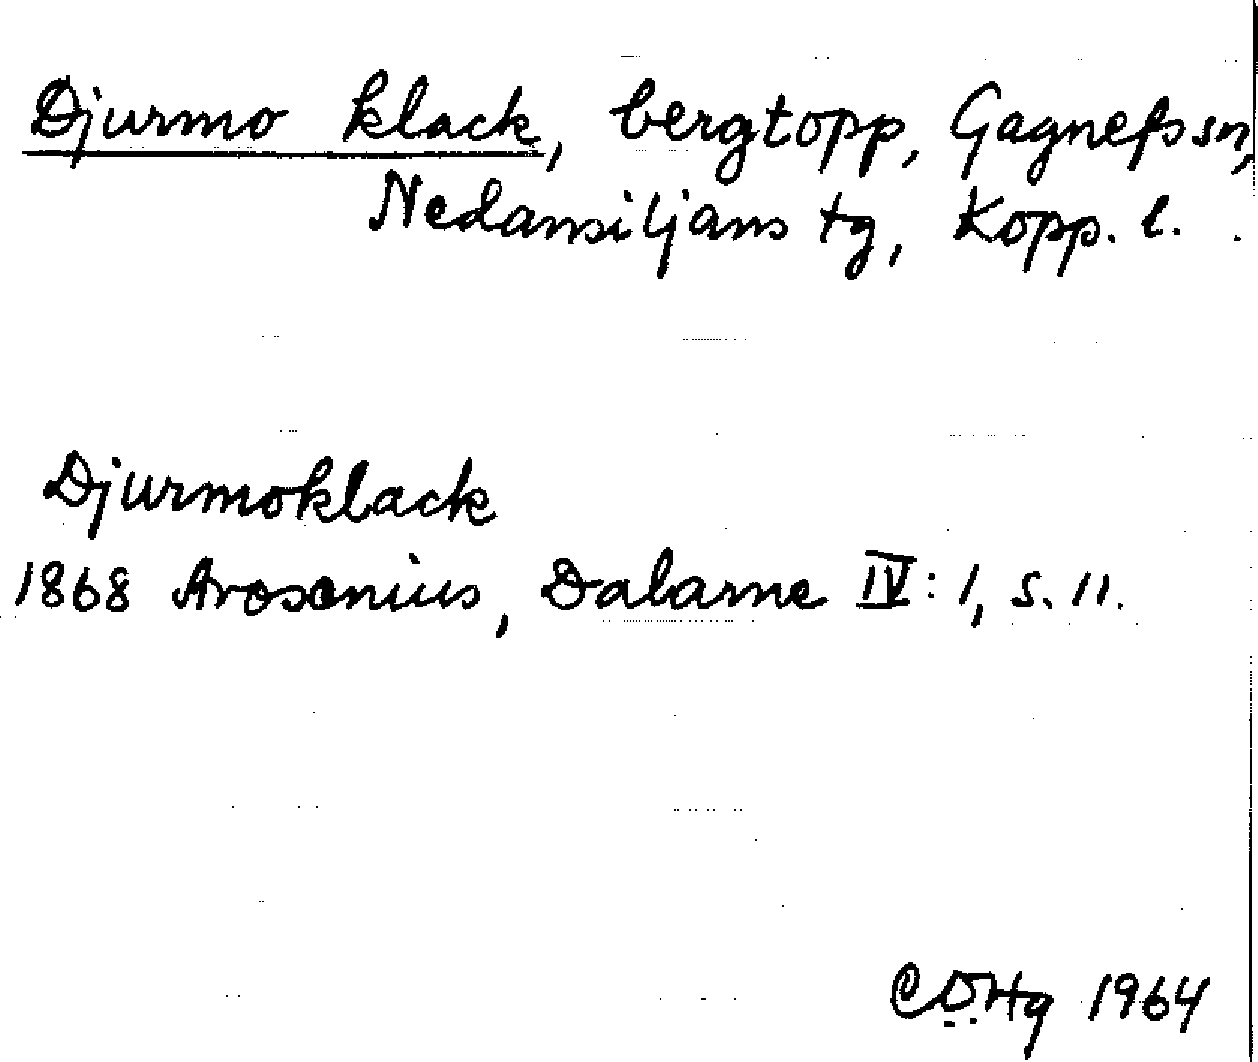 Djurmo klack, bergtopp, Gagnefs sn,
Nedansiljans tg, Kopp. l.
Djurmoklack
1868 Arosenius, Dalarne IV: 1, s. 11.
C.D.Hg 1964